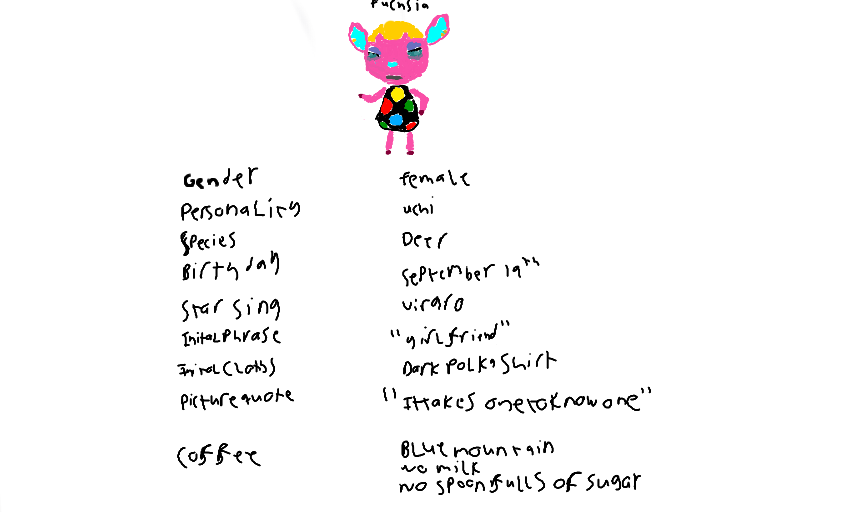 Fuchsia
Gender female
Personality uchi
Species Deer
Birthday September 19th
Star sing virgro
Inital phrase "girlfriend"
Inital cloths Dark polka shirt
Picture quote "It takes one to know one"
Coffee Blue mountain
no milk
no spoonfulls of sugar